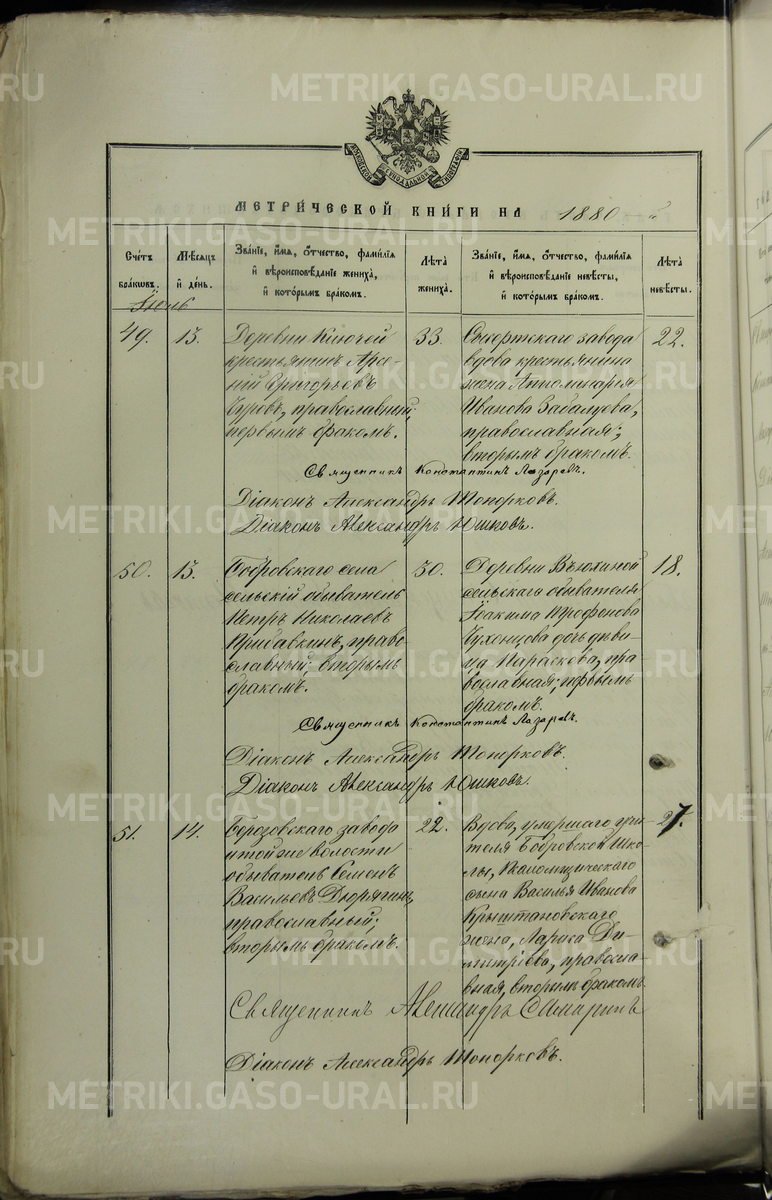 METRIKI.GASO-URAL.RU
МОСКОВСКОЙ СѴНОДАЛЬНОЙ ТИПОГРАФІИ
МЕТРИ́ЧЕСКОЙ КНИ́ГИ НА 1880 й
Сче́тъ бра́кѡвъ.
Мѣ́сяцъ и́ де́нь.
Зва́нїе, и́мѧ, ѻ́тчество, фами́лїѧ и́ вѣроисповѣ́данїе жениха̀, и́ кото́рымъ бра́комъ.
Лѣ́та жениха̀.
Зва́нїе, и́мѧ, ѻ́тчество, фами́лїѧ и́ вѣроисповѣ́данїе невѣ́сты, и́ кото́рымъ бра́комъ.
Лѣ́та невѣ́сты.
Іюль
49. 13.
Деревни Ключей
крестьянинъ Арсе-
ній Григорьевъ
православный,
первымъ бракомъ.
33.
Сысертскаго завода
вдова крестьянина
жена Апполинарія
Иванова
православная;
вторымъ бракомъ.
22.
Священникъ Константинъ Лазаревъ.
Діаконъ Александръ Топорковъ.
Діаконъ Александръ Юшковъ.
50. 13.
Бобровскаго села
сельскій обыватель
Петръ Николаевъ
Прибавкинъ, право-
славный; вторымъ
бракомъ.
30.
Деревни Вьюхиной
сельскаго обывателя
Іоакима Трофонова
дочь дѣви-
ца Параскова, пра-
вославная; первымъ
бракомъ.
18.
Священникъ Константинъ Лазаревъ.
Діаконъ Александръ Топорковъ.
Діаконъ Александръ Юшковъ.
51. 14.
Березовскаго завода
и тойже волости
обыватель Семенъ
Васильевъ Дюрягинъ,
православный;
вторымъ бракомъ.
22.
Вдова, умершаго учи-
теля Бобровской шко-
лы,
сына Василья Иванова
Крыштановскаго
жена, Лариса Ди-
митріева, правосла-
вная, вторымъ бракомъ
27.
Священникъ Александръ Симаринъ
Діаконъ Александръ Топорковъ.